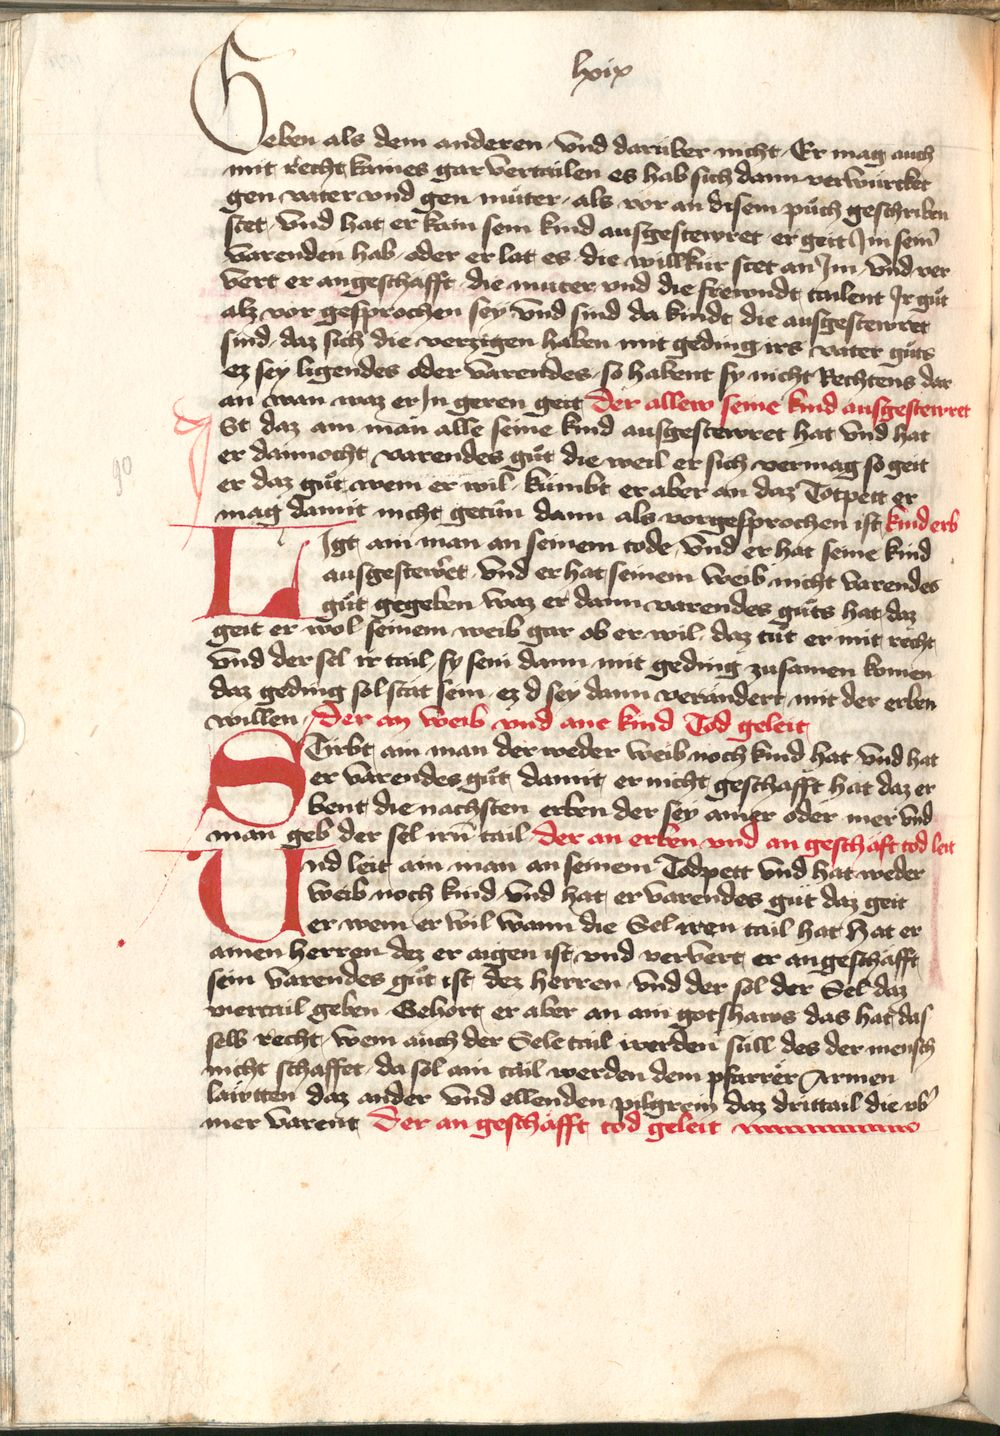 lxix
Geben als dem anderen vnd daruber nicht Er mag auch
mit Recht kaines gar vertailen es hab sich dann verwürcket
gen vater vnd gen müter als vor an disem püch geschriben
stet vnd hat er kain sein kind ausgestewret er geit Im sein
varenden hab oder er lat es die willkür stet an Im vnd ver
vert er angeschafft die muter vnd die frewndt tailent Ir güt
alz vor gesprochen sey vnd sind da kindt die ausgestewret
sind daz sich die verzigen haben mit geding irs vater güts
ez sey ligendes oder varendes so habent sy nicht Rechtens dar
an wan waz er In geren geit Der allew seine kind ausgestewret
Ist daz ain man alle seine kind ausgestewret hat vnd hat
er dannocht varendes güt die weil er sich vermag so geit
er daz güt wem er wil kümbt er aber an daz Totpett er
mag damit nicht getün dann als vorgesprochen ist kind erb
LIgt ain man an seinem tode vnd er hat seine kind
ausgestewret vnd er hat seinem weib nicht varendes
güt gegeben waz er dann varendes güts hat daz
geit er wol seinem weib gar ob er wil daz tüt er mit recht
vnd der sel ir tail sy sein dann mit geding zusamen komen
daz geding sol stät sein ez d sey dann verändert mit der erben
willen Der an weib vnd ane kind Tod geleit
STirbt ain man der weder weib noch kind hat vnd hat
er varendes güt damit er nicht geschafft hat daz er
bent die nachsten erben der sey ainer oder mer vnd
man geb der sel irn tail Der an erben vnd an geschäft tod leit
Vnd leit ain man an seinem Todpett vnd hat weder
weib noch kind vnd hat er varendes güt daz geit
er wem er wil wann die Sel iren tail hat Hat er
ainen herren dez er aigen ist vnd ververt er an geschäfft
sein varendes güt ist dez herren vnd der sol der Sel daz
viertail geben Gehort er aber an ain gotshaws das hat das
selb recht wem auch der Sele tail werden süll des der mensch
nicht schaffet da sol ain tail werden dem pfarrer Armen
läwtten daz ander vnd ellenden pilgreim daz drittail die vb
mer varent Der an geschäfft tod geleit
90